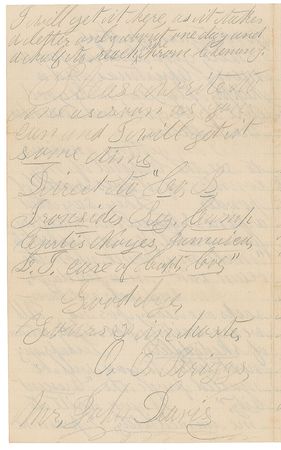 I will get it here, as it takes
a letter only about one day and
a half to reach from
Please write to
me as soon as you
can and I will get it
some time
Direct to "Co. B
Ironsides Reg. Camp
Curtis Noyes, Jamaica,
L. I. care of Capt. Coe"
Good bye,
Yours in haste,
O. O. Briggs
Mr. John Davis